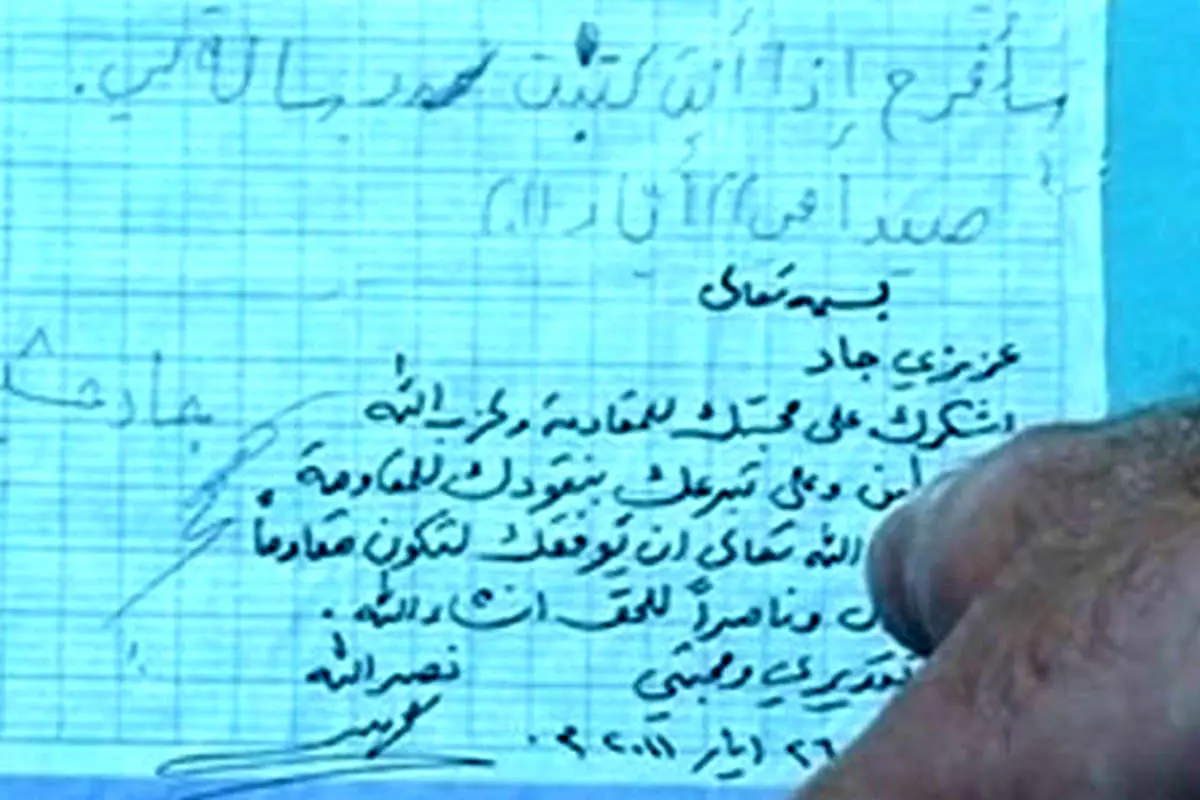 سأفرح إذا أنت كتبت رسالة لي.
صيدا في ١١ أيار
بسمه تعالى
عزيزي جاد
اشكرك على محبتك للمقاومة ولحزب الله
وعلى تبرعك بنقودك للمقاومة
الله تعالى ان يوفقك لتكون مقاوماً
وناصراً للحق انشاء الله.
تقديري ومحبتي
نصر الله
٢٦ ايار ٢٠١١ م.
جاد